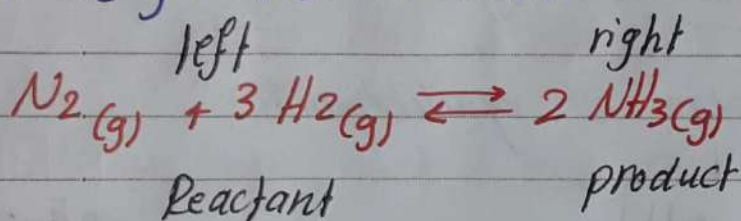 left right
N2(g) + 3 H2(g) ⇌ 2 NH3(g)
Reactant product